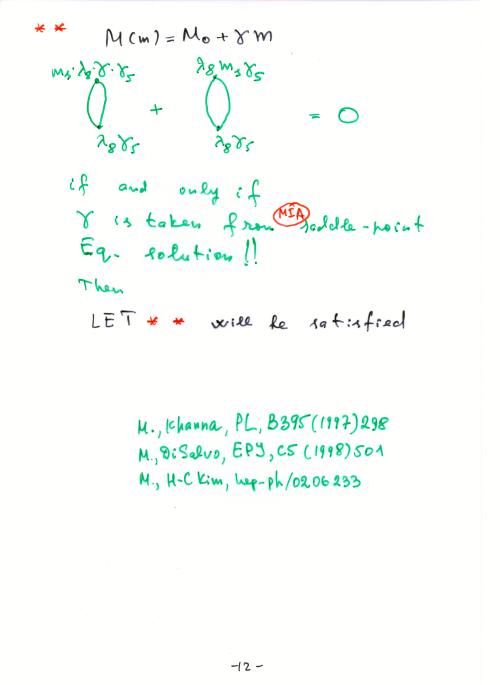 * * M(m) = M₀ + γ m
m₅ λ₈ γ · γ₅ λ₈ m₅ γ₅
+ = 0
λ₈ γ₅ λ₈ γ₅
if and only if
γ is taken from MIA saddle-point
Eq. solution!!
Then
LET * * will be satisfied
M., Khanna, PL, B395 (1997) 298
M., DiSalvo, EPJ, C5 (1998) 501
M., H-C Kim, hep-ph/0206233
-12-